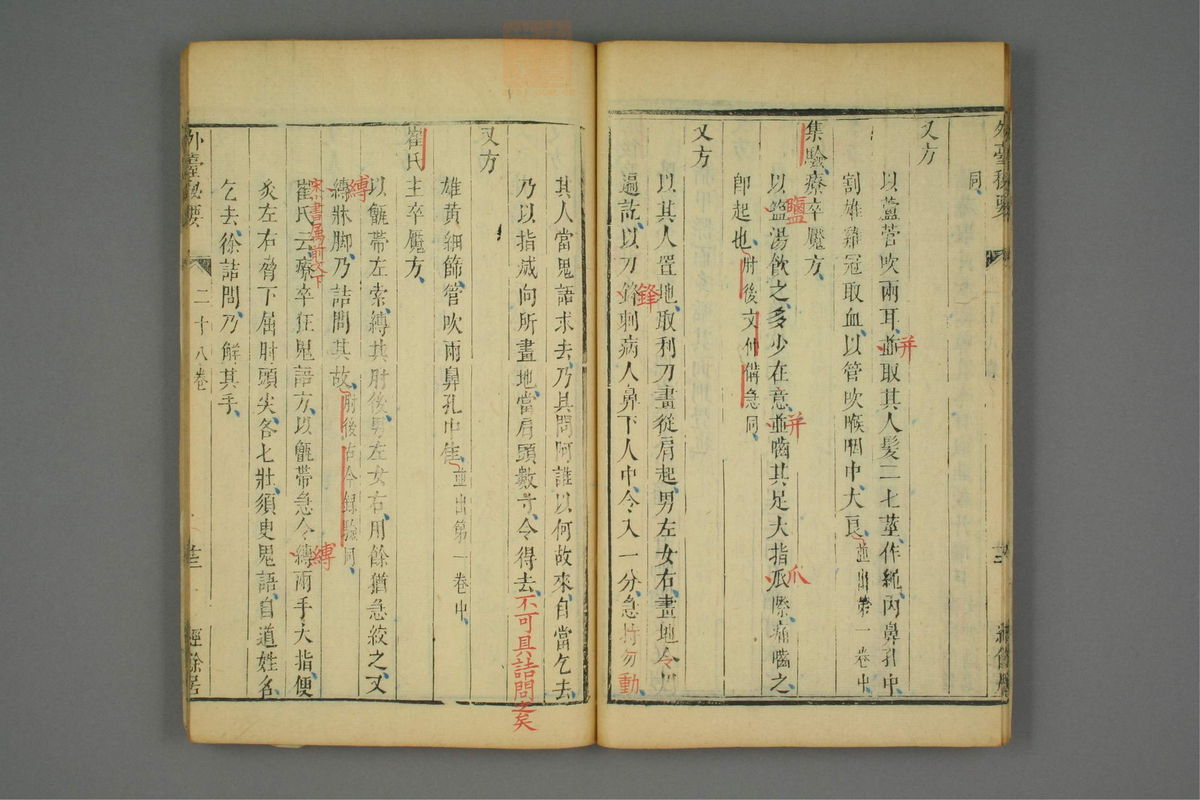 同
又方
以蘆管吹兩耳並取其人髮二七莖作繩內鼻孔中
割雄雞冠取血以管吹喉咽中大良並出第一卷中
并
集驗療卒魘方
以盬湯飲之多少在意並嚙其足大指爪際痛嚙之
鹽
并
爪
卽起也肘後文仲備急同
又方
以其人置地取利刀畫從肩起男左女右畫地令以
遍訖以刀鋒刺病人鼻下人中令入一分急持勿動
鋒
其人當鬼語求去乃具問阿誰以何故來自當乞去
乃以指滅向所畫地當肩頭數寸令得去不可具詰問之矣
又方
雄黃細篩管吹兩鼻孔中佳並出第一卷中
崔氏主卒魘方
以甑帶左索縛其肘後男左女右用餘猶急絞之又
縛牀脚乃詰問其故肘後古今錄驗同
縛
宋書屬前文下
崔氏云療卒狂鬼語方以甑帶急令縛兩手大指便
縛
灸左右脅下屈肘頭尖各七壯須臾鬼語自道姓名
乞去徐詰問乃解其手
外臺秘要
二十八卷
經餘居